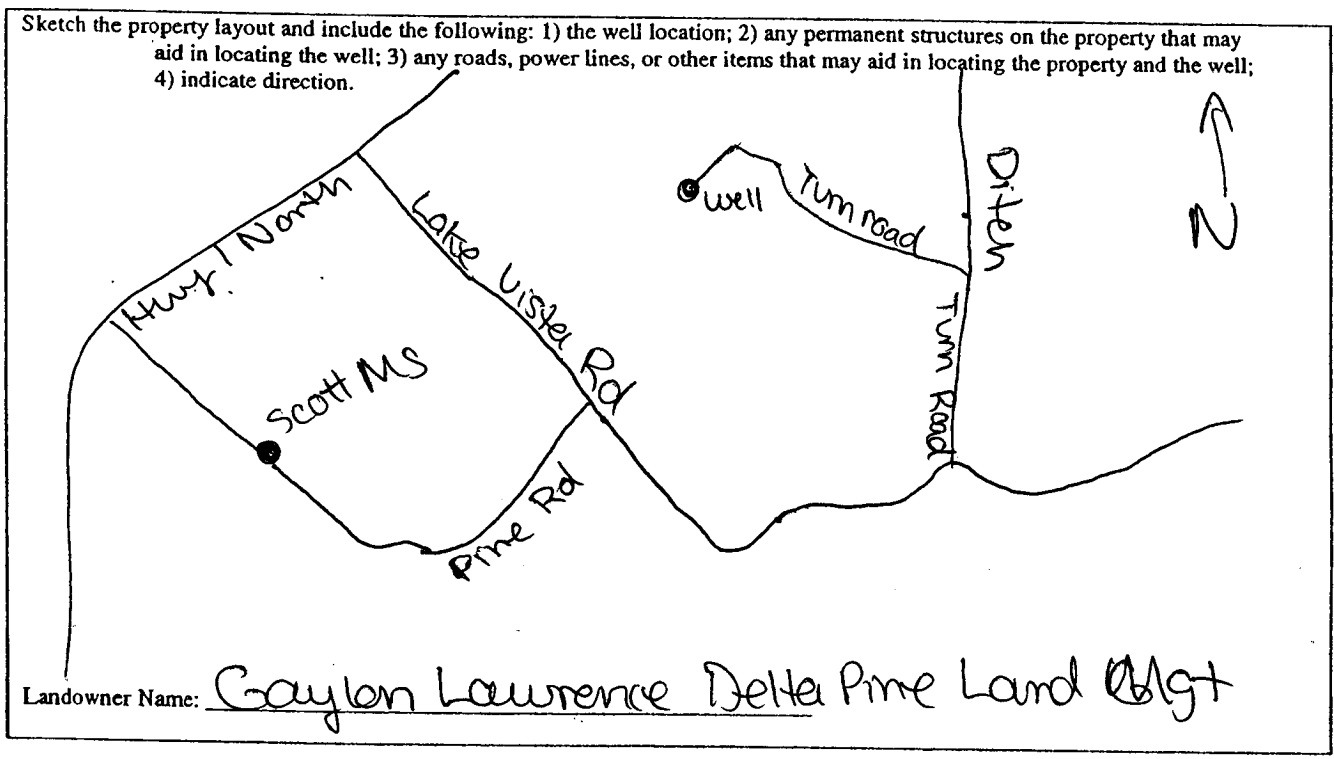 Sketch the property layout and include the following: 1) the well location; 2) any permanent structures on the property that may
aid in locating the well; 3) any roads, power lines, or other items that may aid in locating the property and the well;
4) indicate direction.
N
Ditch
Well
Turn road
Hwy 1 North
Lake Vista Rd
Turn Road
Scott MS
Pine Rd
Landowner Name: Gaylon Lawrence Delta Pine Land Mgt